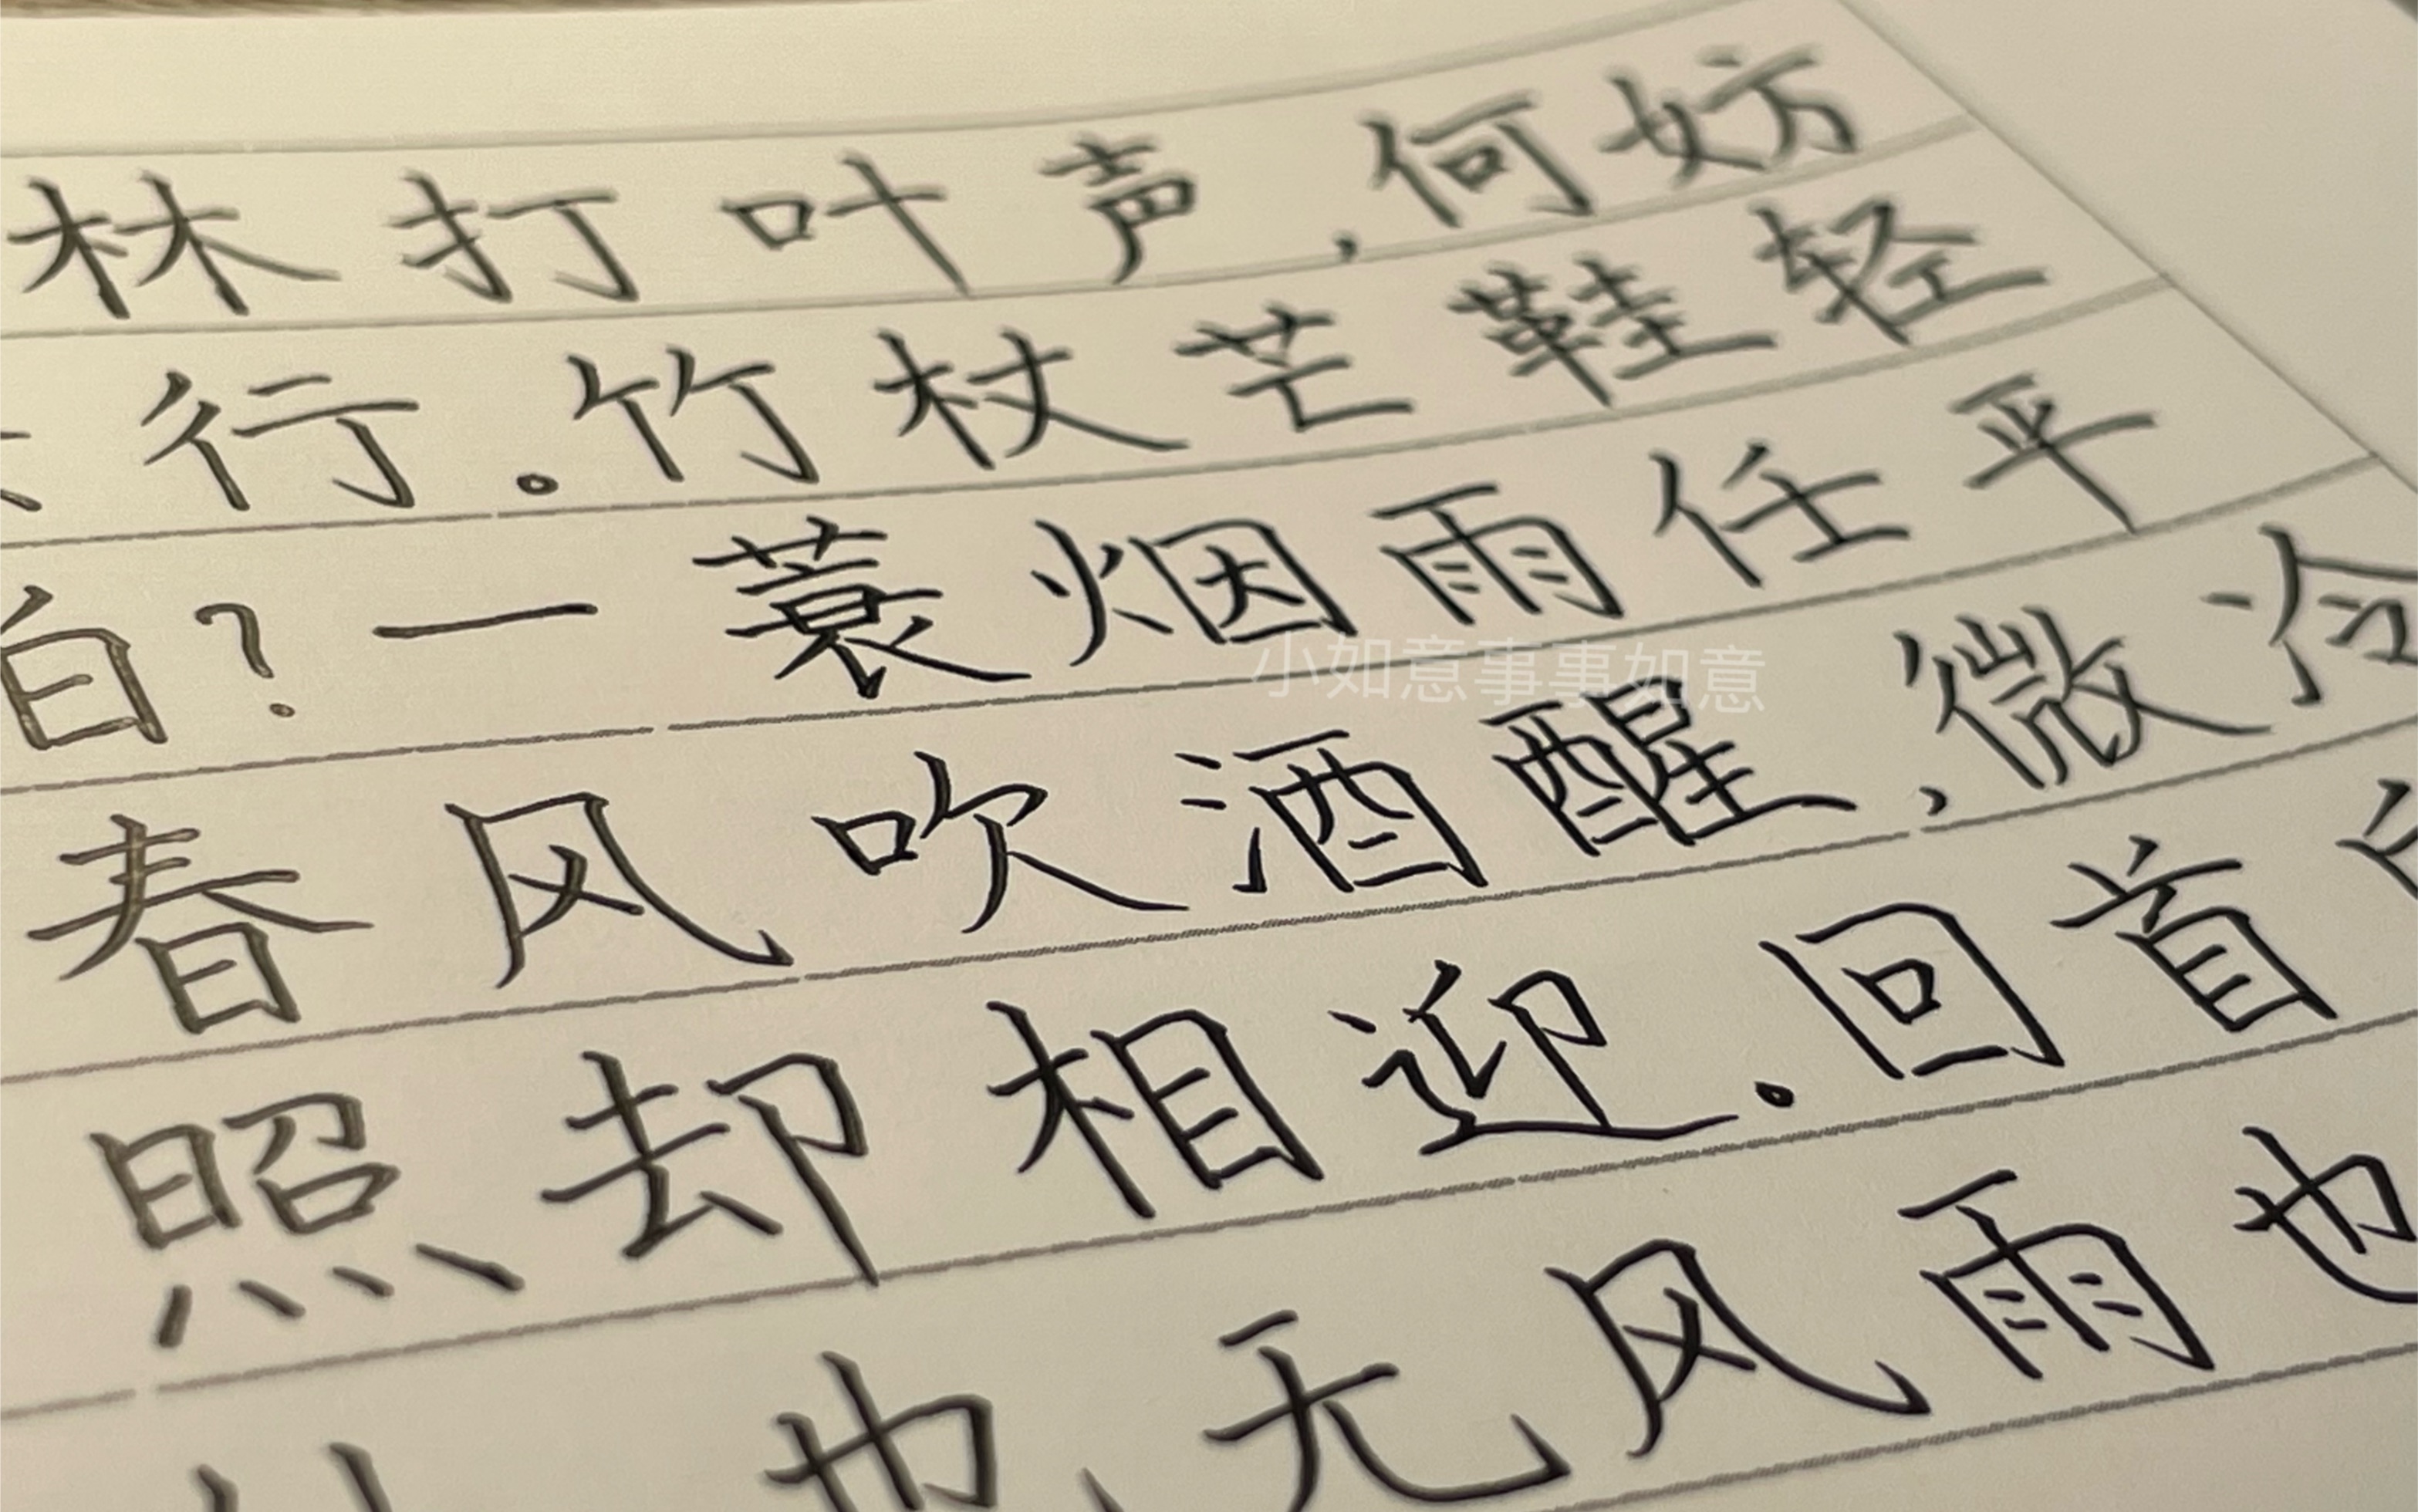 林打叶声,何妨
行。竹杖芒鞋轻
白?一蓑烟雨任平
小如意事事如意
春风吹酒醒,微冷
照却相迎。回首
也无风雨也